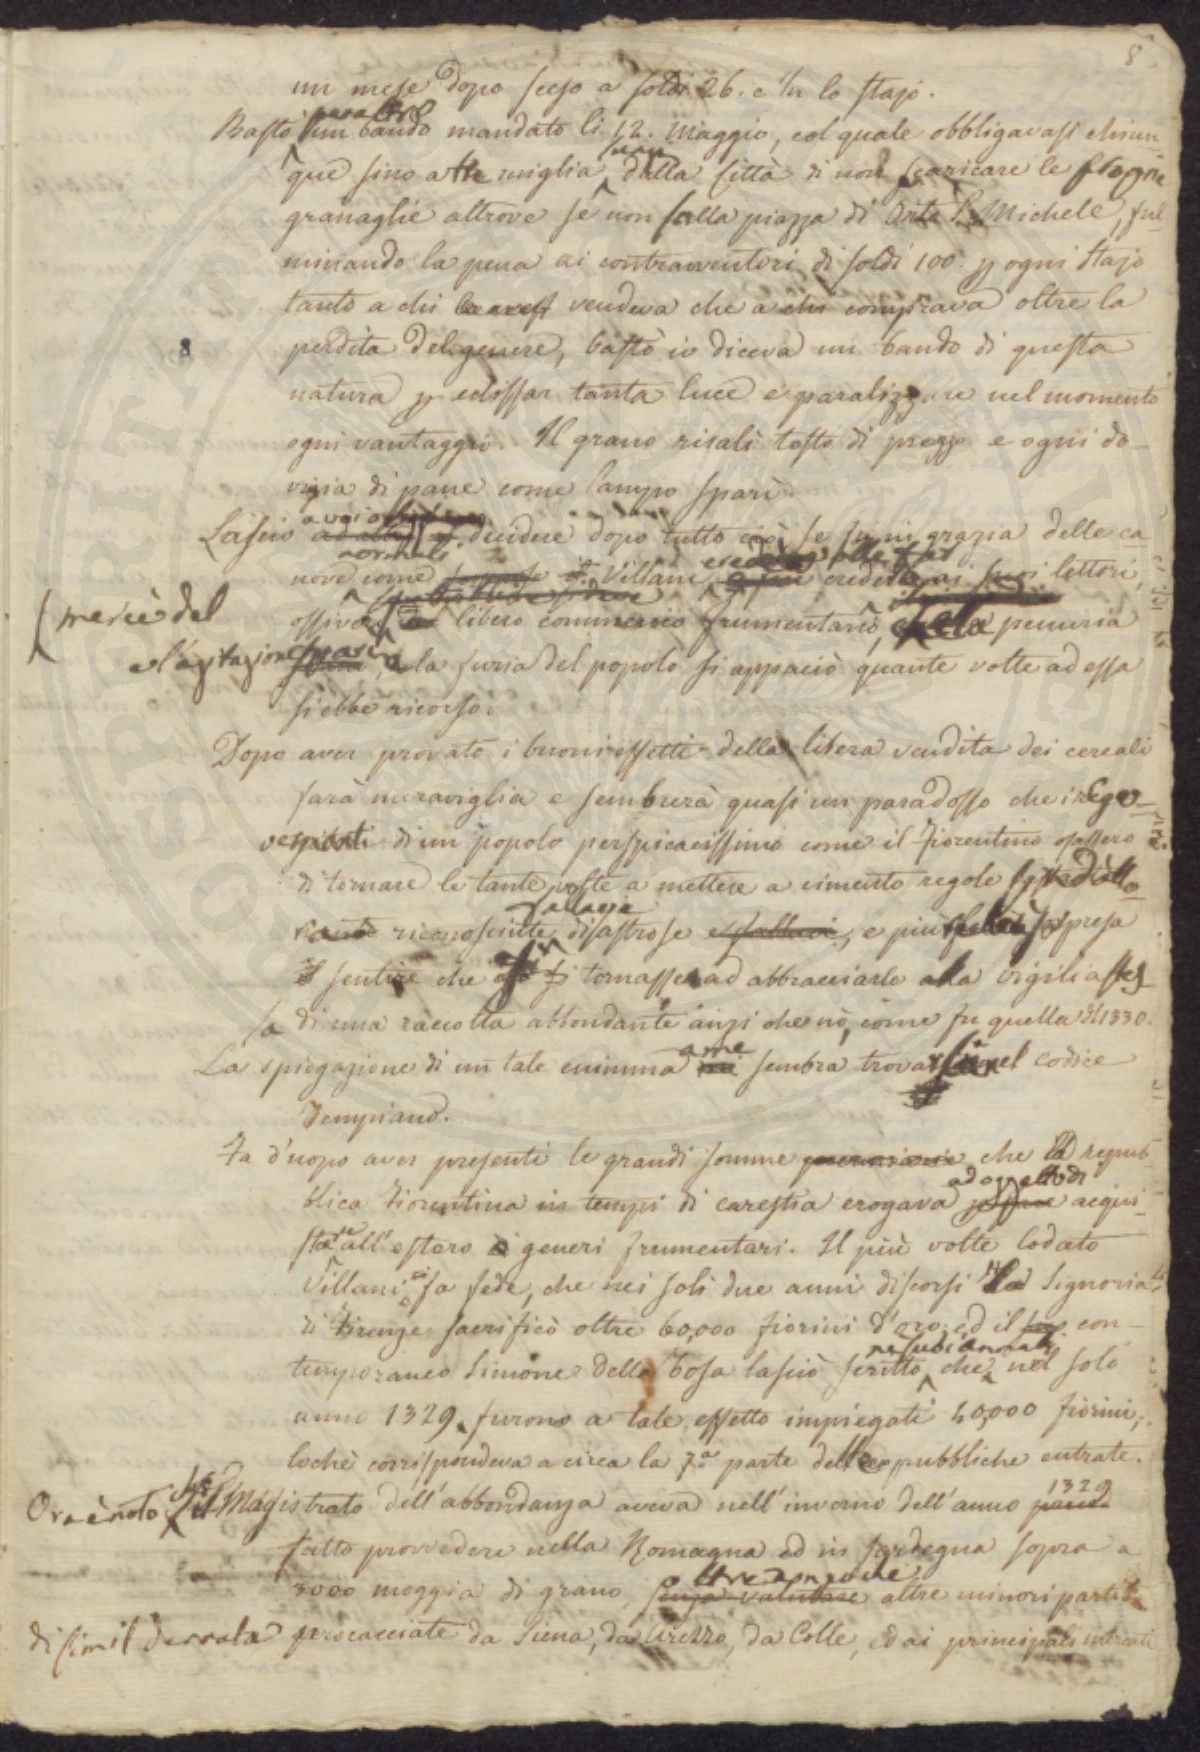 8
un mese dopo sceso a soldi 26. e 1/2 lo stajo.
Bastò peraltro un bando mandato li 12. maggio, col quale obbligavasi chiun-
que sino a tre miglia dalla Città di non scaricare le proprie
granaglie altrove se non sulla piazza di Orto S. Michele, ful-
minando la pena ai contravventori di soldi 100. p ogni stajo
tanto a chi vendeva che a chi comprava oltre la
perdita del genere, bastò io diceva un bando di questa
8
natura p eclissar tanta luce e paralizzare nel momento
ogni vantaggio. Il grano risalì tosto di prezzo e ogni do-
vizia di pane come lampo sparì.
Lascio decidere dopo tutto ciò, se fu in grazia delle ca
nove come Villani lettori,
ossivero libero commercio frumentario, penuria
(mercè del
e l'agitazione la furia del popolo si appaciò quante volte ad essa
si ebbe ricorso.
Dopo aver provato i buoni effetti della libera vendita dei cereali
farà meraviglia e sembrerà quasi un paradosso che i rego-
di un popolo perspicacissimo come il Fiorentino osassero
di tornare le tante volte a mettere a cimento regole
riconosciute fallaci disastrose e fallaci, e più sorpresa
sentire che si tornasse ad abbracciarle alla vigilia stes
sa di una raccolta abbondante anzi che nò, come fu quella del 1330.
La spiegazione di un tale enimma a me sembra trovarsi nel Codice
Tempiano.
Fa d'uopo aver presenti le grandi somme pecuniarie che la repub-
blica Fiorentina in tempi di carestia erogava ad oggetto di acqui-
stare all'estero generi frumentari. Il più volte lodato
Villani ci fa fede, che nei soli due anni discorsi la Signoria
di Firenze sacrificò oltre 60,000 fiorini d'oro; ed il suo con-
temporaneo Simone della Tosa lasciò scritto che nel solo
anno 1329. furono a tale effetto impiegati 40,000 fiorini,
lochè corrispondeva a circa la 7.a parte delle pubbliche entrate.
Ora è noto che il Magistrato dell'abbondanza aveva nell'inverno dell'anno 1329
fatto provvedere nella Romagna ed in Sardegna sopra a
3000 moggia di grano, oltre senza valutare altre minori partite
di simil derrata procacciate da Siena, da Arezzo, da Colle, ed ai principali mercati